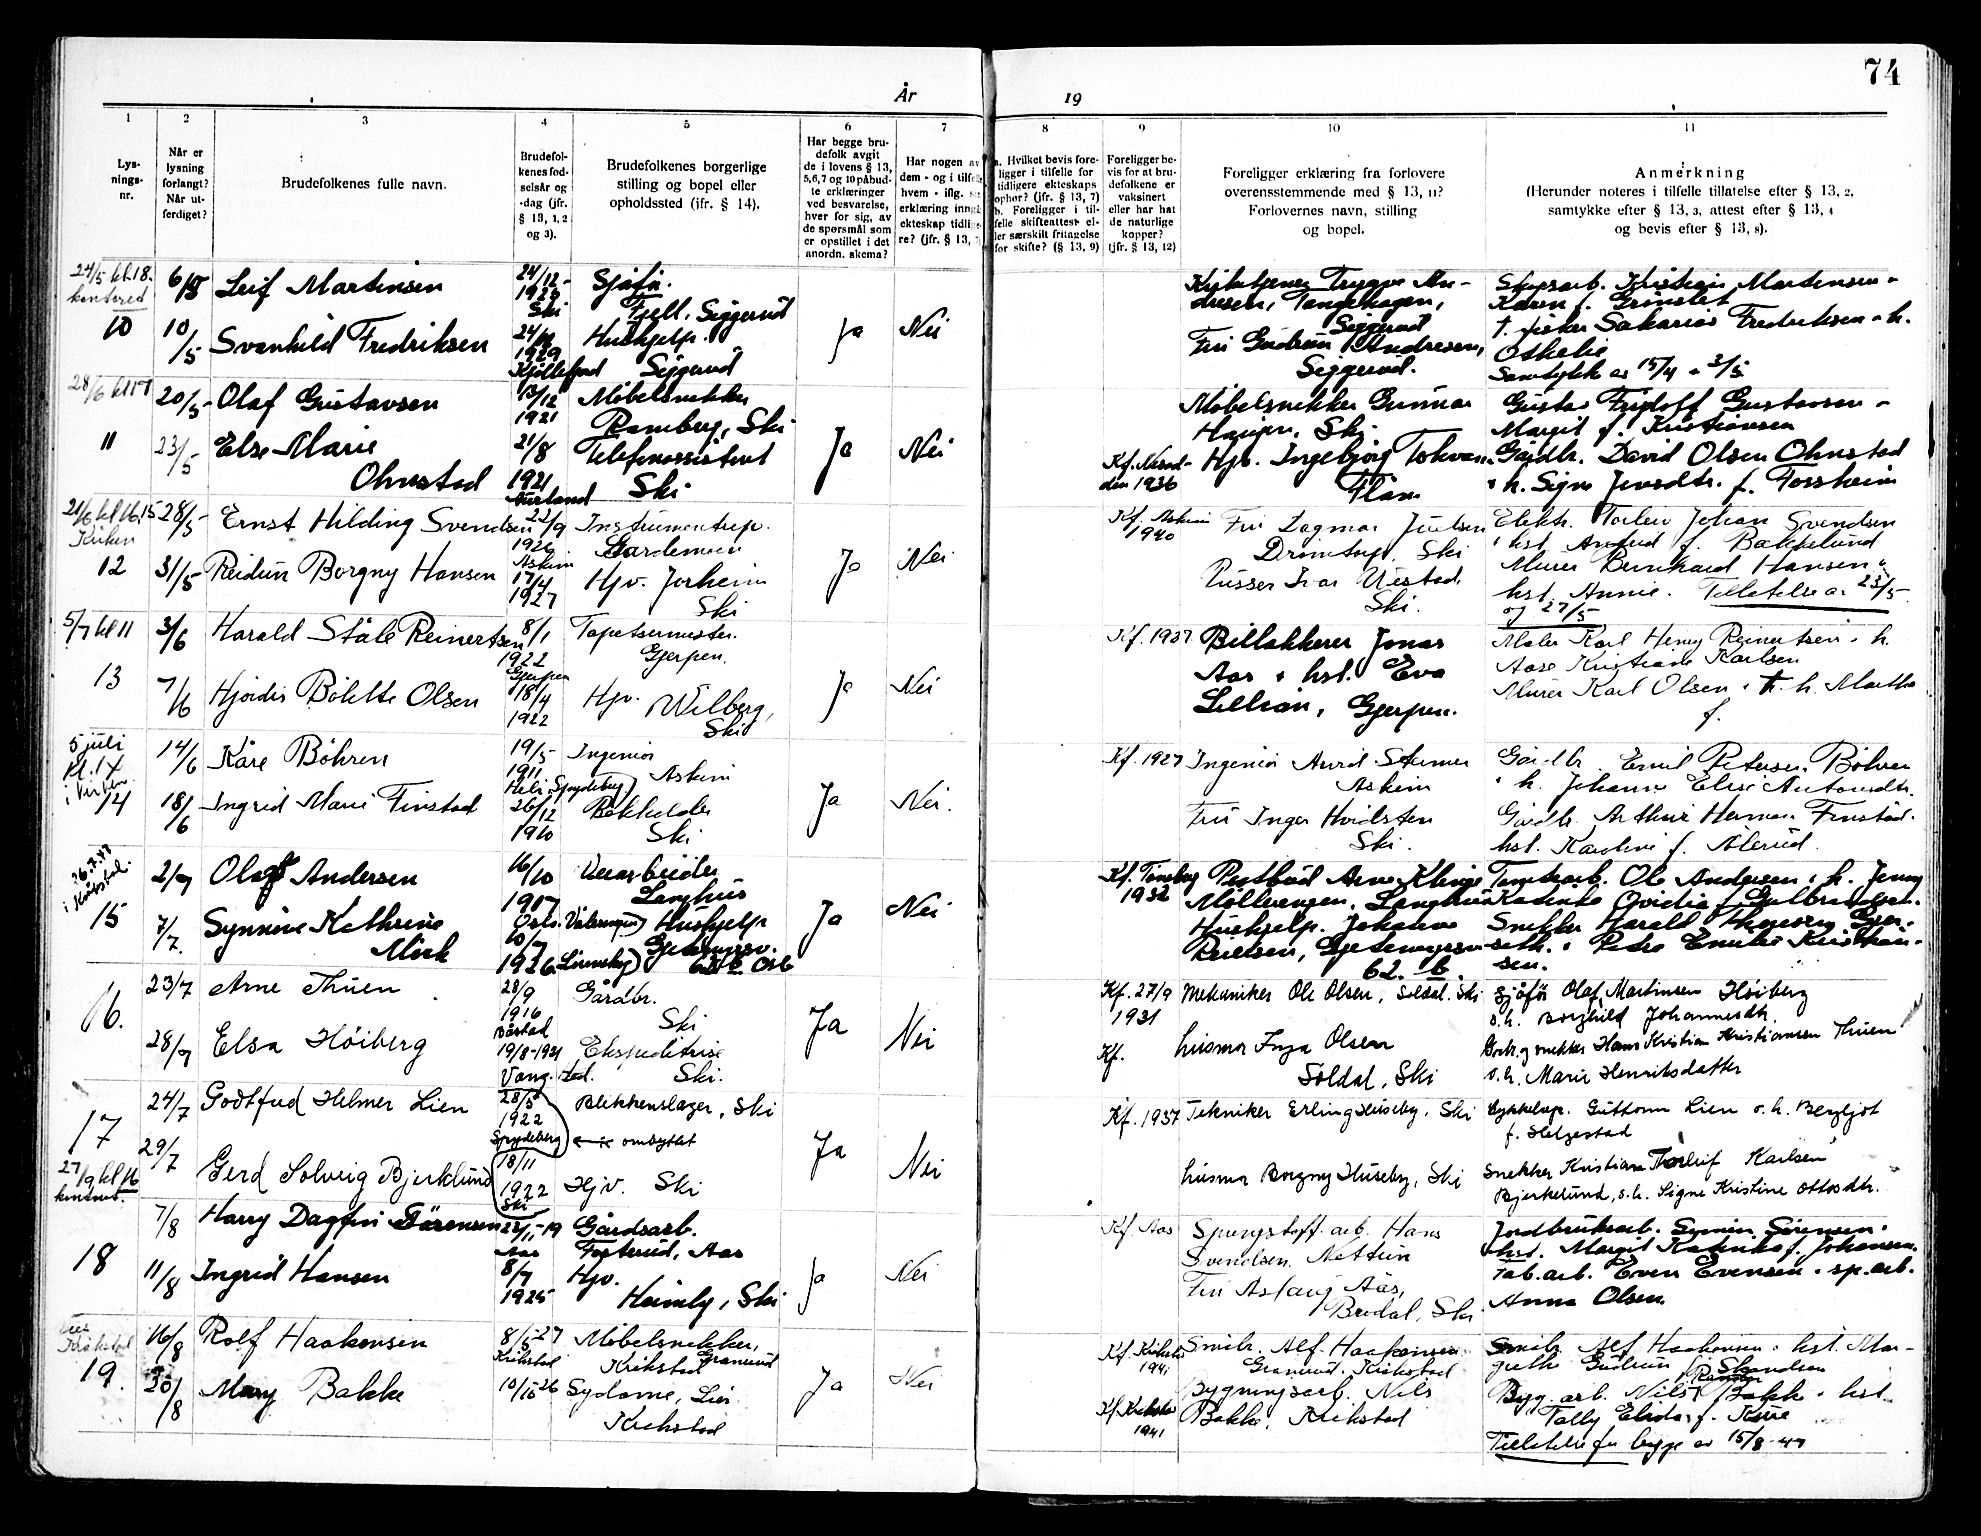 74
År
19
1
2
3
4
5
6
7
8
9
10
11
Lys-
nings-
nr.
Når er
lysning
forlangt?
Når ut-
ferdiget?
Brudefolkenes fulle navn.
Brudefol-
kenes fød-
selsår og
-dag (jfr.
§ 13, 1, 2
og 3).
Brudefolkenes borgerlige
stilling og bopel eller
opholdssted (ifr. § 14).
Har begge bru-
defolk avgit
de i lovens § 13,
5,6,7 og 10 påbud-
te erklæringer
ved besvarelse,
hver for sig, av
de spørsmål som
er opstillet i det
anordn. skema?
Har nogen av
dem - og i tilfelle
hvem - iflg.
erklæring inngå
ekteskap tidlige-
re? (jfr. § 13,
a. Hvilket bevis fore-
ligger i tilfelle for
tidligere ekteskaps
ophør? (jfr. § 13, 7)
b. Foreligger i til-
felle skifteattest el-
ler særskilt fritagelse
for skifte? (§ 13, 9)
Foreligger be-
vis for at bru-
defolkene er
vaksinert
eller har hat
de naturlige
kopper?
(jfr. § 13, 12)
Foreligger erklæring fra forlovere
overensstemmende med § 13, 11?
Forlovernes navn, stilling
og bopel.
Anmerkning
(Herunder noteres i tilfelle tillatelse efter § 13, 2,
samtykke efter § 13, 3, attest efter § 13, 4
og bevis efter § 13, 8).
24/5 kl. 18.
10
6/5
10/5
Leif Martinsen
Svanhild Fredriksen
24/12-
1926
Ski
1929
Kjøllefjord
Sjåfør.
Fjell, Siggerud
Hushjelp.
Siggerud
Ja
Nei
Tangehagen,
Siggerud
Fru Gudrun Andresen,
Siggerud.
Skogsarb. Kristian Martinsen
Karen f. Grønslet
Sakarias Fredriksen h.
Samtykke av 15/4 2/5
11
20/5-
23/5
Olaf Gustavsen
Else Marie
Ohnstad
13/12
1921
21/8
1921
Aurland
Møbelsnekker
Ramberg, Ski
Telefonassistent
Ski
Ja
Nei
1936
Møbelsnekker Gunnar
Haugen, Ski
Hjv. Ingebjørg
Flåm
Gustav Fridolf Gustavsen
Margit f. Kristiansen
Gårdbr. David Olsen Ohnstad
h. Signe Jensdtr. f. Forsheim
21/6 kl 16.15
Kirken
12
28/5-
31/5
Ernst Hilding Svendsen
Reidun Borgny Hansen
22/9
1926
Askim
17/4
1927
Instrumentrep.
Gardemoen
Hjv. Jorheim
Ski
Ja
Nei
Kf. Askim
1940
Fru Dagmar Juelsen
Drømtorp, Ski
Pusser Ivar
Ski.
Elektr. Johan Svendsen
hst. f. Bakkelund
Murer Bernhard Hansen
hst. Annie. Tillatelse av 23/5
og 27/5
5/7 kl 11
13
3/6
7/6
Harald Ståle Reinertsen
Hjørdis Bolette Olsen
8/1
1922
Gjerpen
18/4
1922
Tapetsermester.
Gjerpen.
Hjv. Wilberg,
Ski
Ja
Nei
Kf. 1937
Billakkerer Jonas
Aas hst. Eva
Lillian, Gjerpen.
Maler Karl Henry Reinertsen h.
Aase Kristiane Karlsen
Murer Karl Olsen h. Martha
f.
5 juli
14
14/6
18/6
Kåre Böhren
Ingrid Marie Finstad
19/5
1911
Heli Spydeberg
26/12
1910
Ingeniør
Askim
Bokholder
Ski
Ja
Nei.
Kf. 1927
Ingeniør Arvid
Askim
Fru Inger Hvidsten
Ski.
Gårdbr. Emil Petersen Böhren
h. Johanne Elise Antonsdtr.
Gårdbr. Arthur Herman Finstad.
hst. Karoline f. Ålerud.
26.7.47
i Kråkstad.
15
2/7
7/7.
Olaf Andersen
Synnøve Kathrine
Mork
16/10
1917
Oslo. Vålerengen)
10/7
1926
Langhus
Hushjelp
Ja
Nei
Kf. Tønsberg
1932
Postbud Arne Klinge
Møllerengen, Langhus
Hushjelp. Johanne
62. b.
Tomtearb. Ole Andersen h. Jenny
Snekker Harald
Kristian-
sen.
16.
23/7
28/7
Arne Thuen
Elsa Höiberg
28/9
1916
Båstad
19/8-1921
Vang.
Gårdbr.
Ski
Ekspeditrise
Ski.
Ja
Nei
Kf. 27/9
1931
Kf.
mekaniker Ole Olsen, Soldal. Ski
husmor Inga Olsen
Soldal, Ski
sjåför Olaf Martinsen Höiberg
o.h. Borghild Johannesdtr.
Gårdbr. og snekker Hans Kristian Kristiansen Thuen
o.h. Marie Henriksdatter
17
27/9 kl 16
24/7
29/7
Godtfred Helmer Lien
Gerd Solveig Bjerklund
28/5
1922
Spydeberg
18/11
1922
Ski
Blikkenslager, Ski
ombyttet
Hjv. Ski
Ja
Nei
Kf. 1937
Tekniker Erling Huseby, Ski
husmor Borgny Huseby, Ski
Guttorm Lien o.h. Bergljot
f. Helgestad
snekker Kristian Torleif Karlsen
Bjerkelund, o.h. Signe Kristine Ottosdtr.
18
7/8
11/8
Harry Dagfin Sörensen
Ingrid Hansen
Aas
8/7
1925
Gårdsarb.
Fosterud, Aas
Hjv.
Heimly, Ski
Ja
Nei
Kf. Aas
Sprengstoff. arb. Hans
Svendsen
Fru Aslaug Aas,
Brodal, Ski
Jordbruksarb. Sörensen
hst. Margit f. Johansen.
Fab.arb. Even Evensen sp.arb.
Anna Olsen.
Kråkstad
19.
16/8
20/8
Rolf Haakonsen
Mary Bakke
8/5-27
Kråkstad
10/10 26
Møbelsnekker,
Granerud
Kråkstad
Sydame, Lier
Kråkstad
Ja
Nei
Kf. Kråkstad
1941
Kf. Kråkstad
1941
Smibr. Alf Haakonsen
Granerud. Kråkstad
Bygningsarb. Nils
Bakke, Kråkstad
Smibr. Alf Haakonsen hst. Mar-
grethe Gudrun f.
Byg. arb. Nils Bakke hst.
Tillatelse for begge av 15/8-47